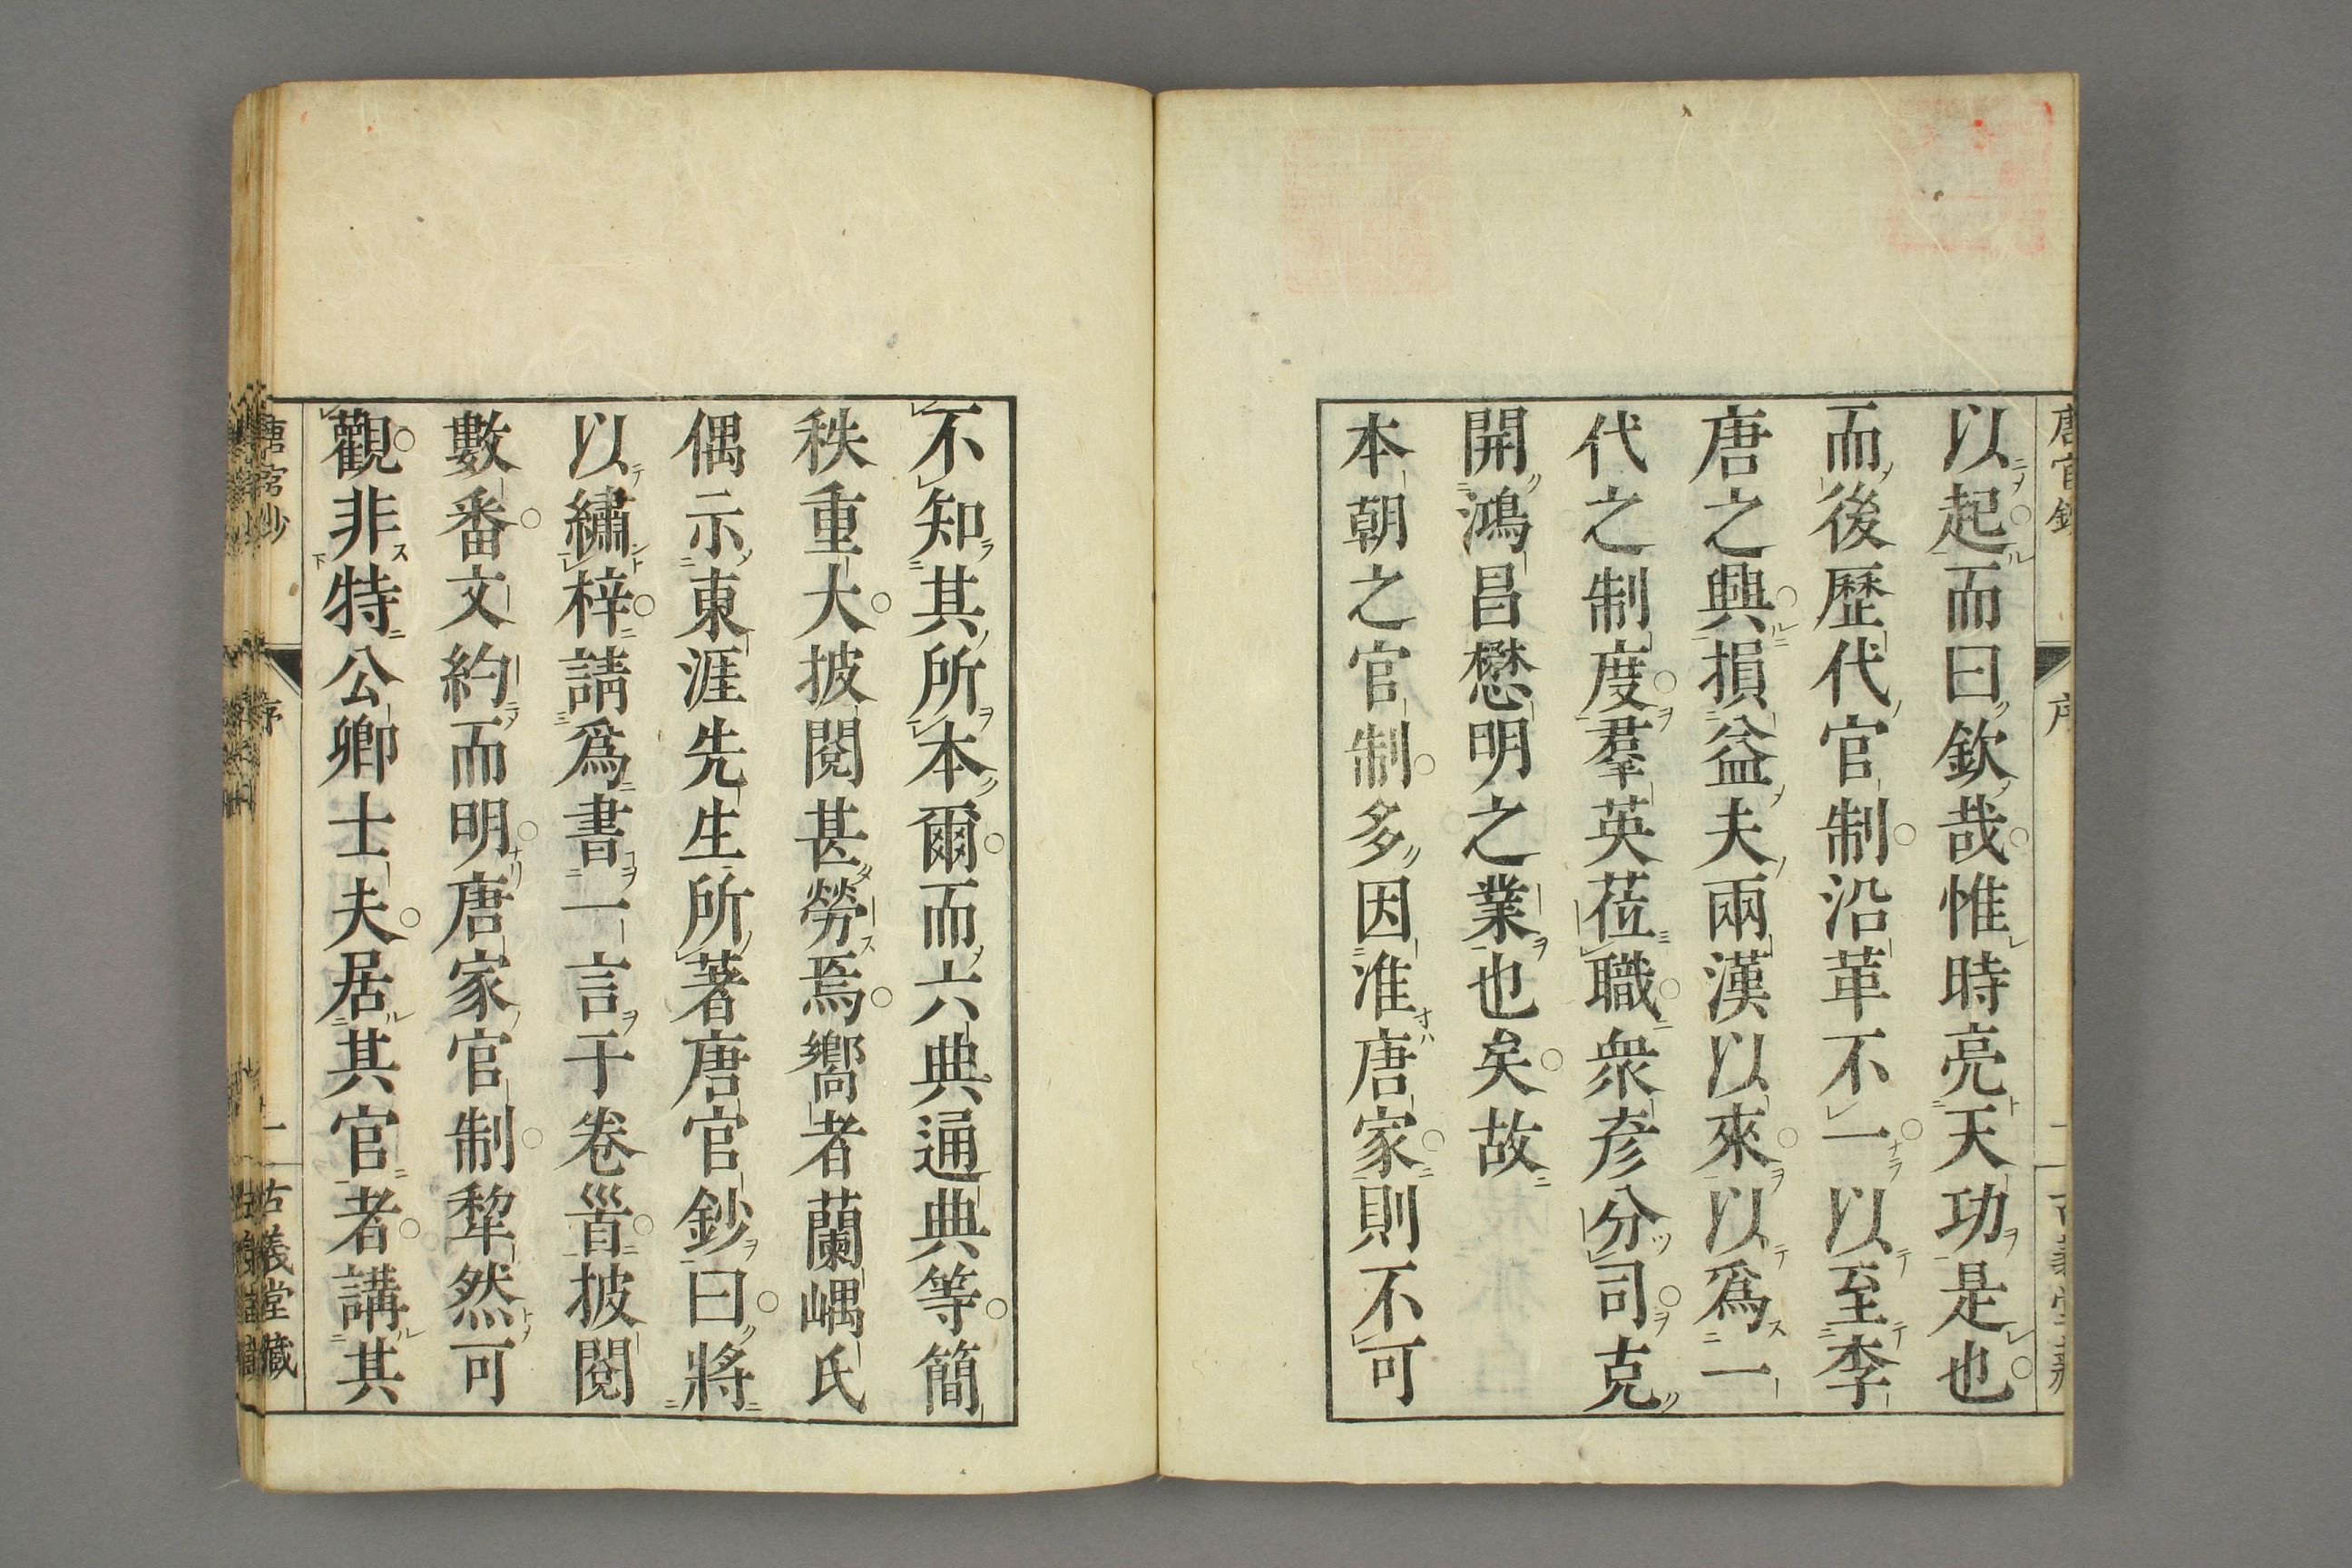 以起而曰欽哉惟時亮天功是也
而後歷代官制沿革不一以至李
唐之興損益夫兩漢以來以爲一
代之制度羣英莅職衆彦分司克
開鴻昌懋明之業也矣故
本朝之官制多因准唐家則不可
不知其所本爾而六典通典等簡
秩重大披閱甚勞焉嚮者蘭嵎氏
偶示東涯先生所著唐官鈔曰將
以繡梓請爲書一言于卷首披閱
數番文約而明唐家官制犂然可
觀非特公卿士夫居其官者講其
唐官鈔
序
二
古義堂藏